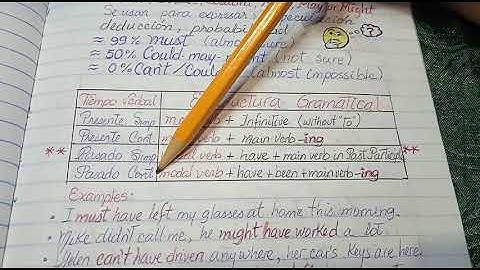 May or Might
Se usan para expresar especulación
deducción, probabilidad
≈ 99% must (almost sure)
≈ 50% Could-may-might (not sure)
≈ 0% Can't/Could (almost impossible)
Tiempo Verbal Estructura Gramatical
Presente Simp modal verb + Infinitive (without "to")
Presente Cont. verb + main verb-ing
** Pasado Simp modal verb + have + main verb in Past Participle **
Pasado Cont. modal verb + have + been + main verb-ing
Examples:
• I must have left my glasses at home this morning.
• Mike didn't call me, he might have worked a lot.
• Helen can't have driven anywhere, her car's keys are here.